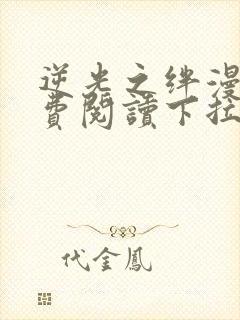 逆光之绊漫
費閱讀下拉
代金鳳